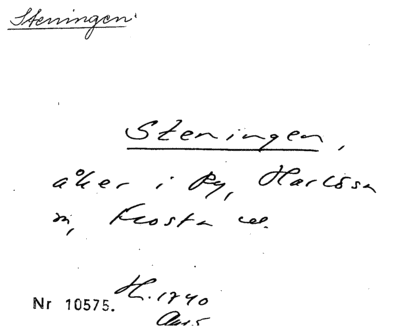 Steningen.
Steningen,
åker i Ry, Harlösa
sn, Frosta
Nr 10575.
H. 1740